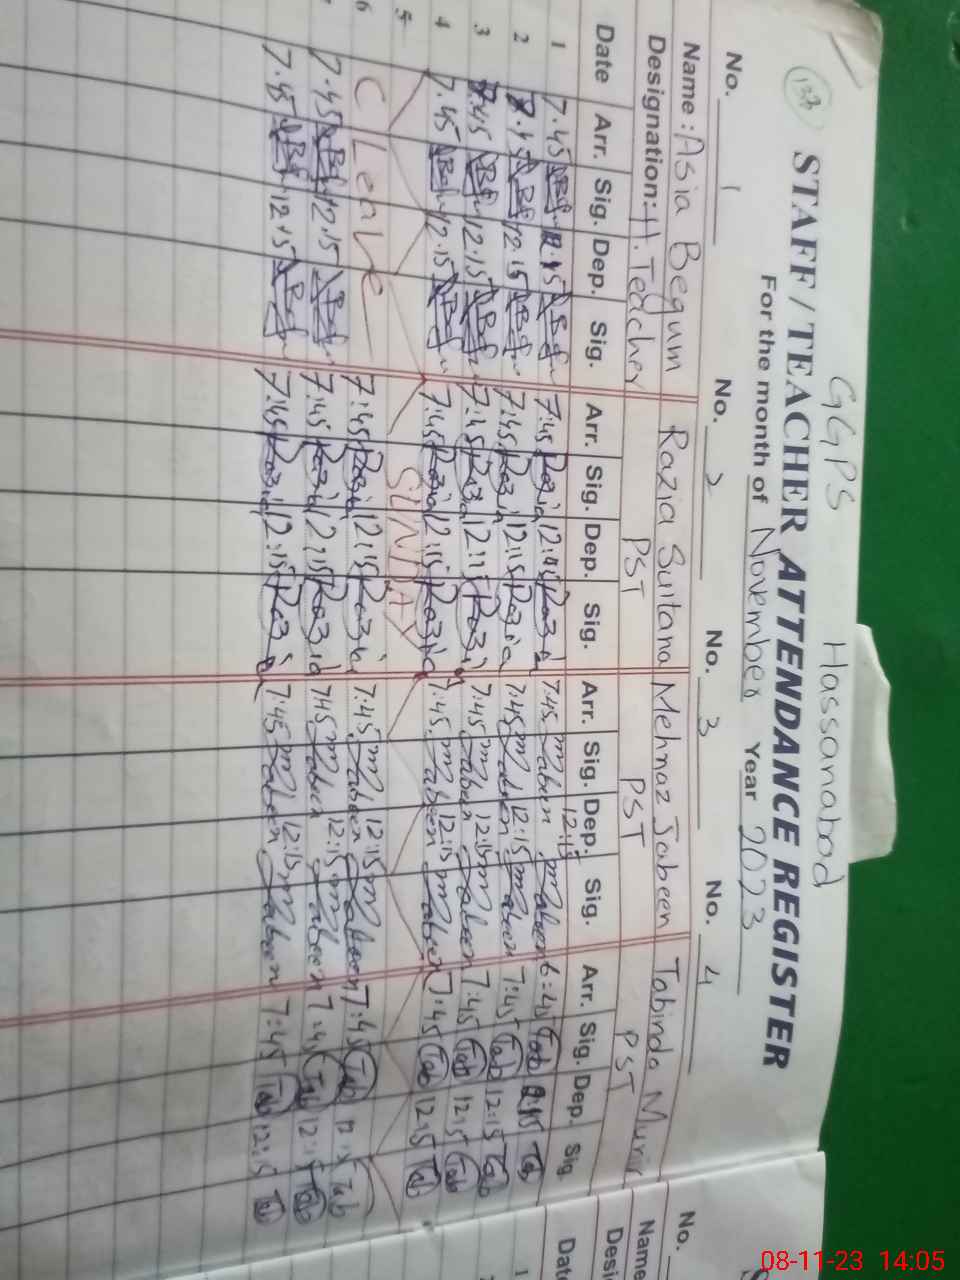 138
GGPS Hassanabad
STAFF / TEACHER ATTENDANCE REGISTER
For the month of November Year 2023
No. 1 No. 2 No. 3 No. 4
Name: Asia Begum Razia Sultana Mehnaz Jabeen Tabinda Munir
Designation: H. Teacher PST PST PST
Date Arr. Sig. Dep. Sig. Arr. Sig. Dep. Sig. Arr. Sig. Dep. Sig. Arr. Sig. Dep. Sig.
1 7.45 12.15 7:45 Razia 12:15 Razia 7:45 M Jabeen 12:15 M Jabeen 6:45 Tab 12:15 Tab
2 7.45 12.15 7:45 Razia 12:15 Razia 7:45 M Jabeen 12:15 M Jabeen 7:45 Tab 12:15 Tab
3 7.45 12.15 7:45 Razia 12:15 Razia 7:45 M Jabeen 12:15 M Jabeen 7:45 Tab 12:15 Tab
4 7.45 12.15 7:45 Razia 12:15 Razia 7:45 M Jabeen 12:15 M Jabeen 7:45 Tab 12:15 Tab
5 SUNDAY
6 C Leave 7:45 Razia 12:15 Razia 7:45 M Jabeen 12:15 M Jabeen 7:45 Tab 12:15 Tab
7.45 12.15 7:45 Razia 12:15 Razia 7:45 M Jabeen 12:15 M Jabeen 7:45 Tab 12:15 Tab
7.45 12.15 7:45 Razia 12:15 Razia 7:45 M Jabeen 12:15 M Jabeen 7:45 Tab 12:15 Tab
No.
Name
Desi
Date
1
08-11-23 14:05